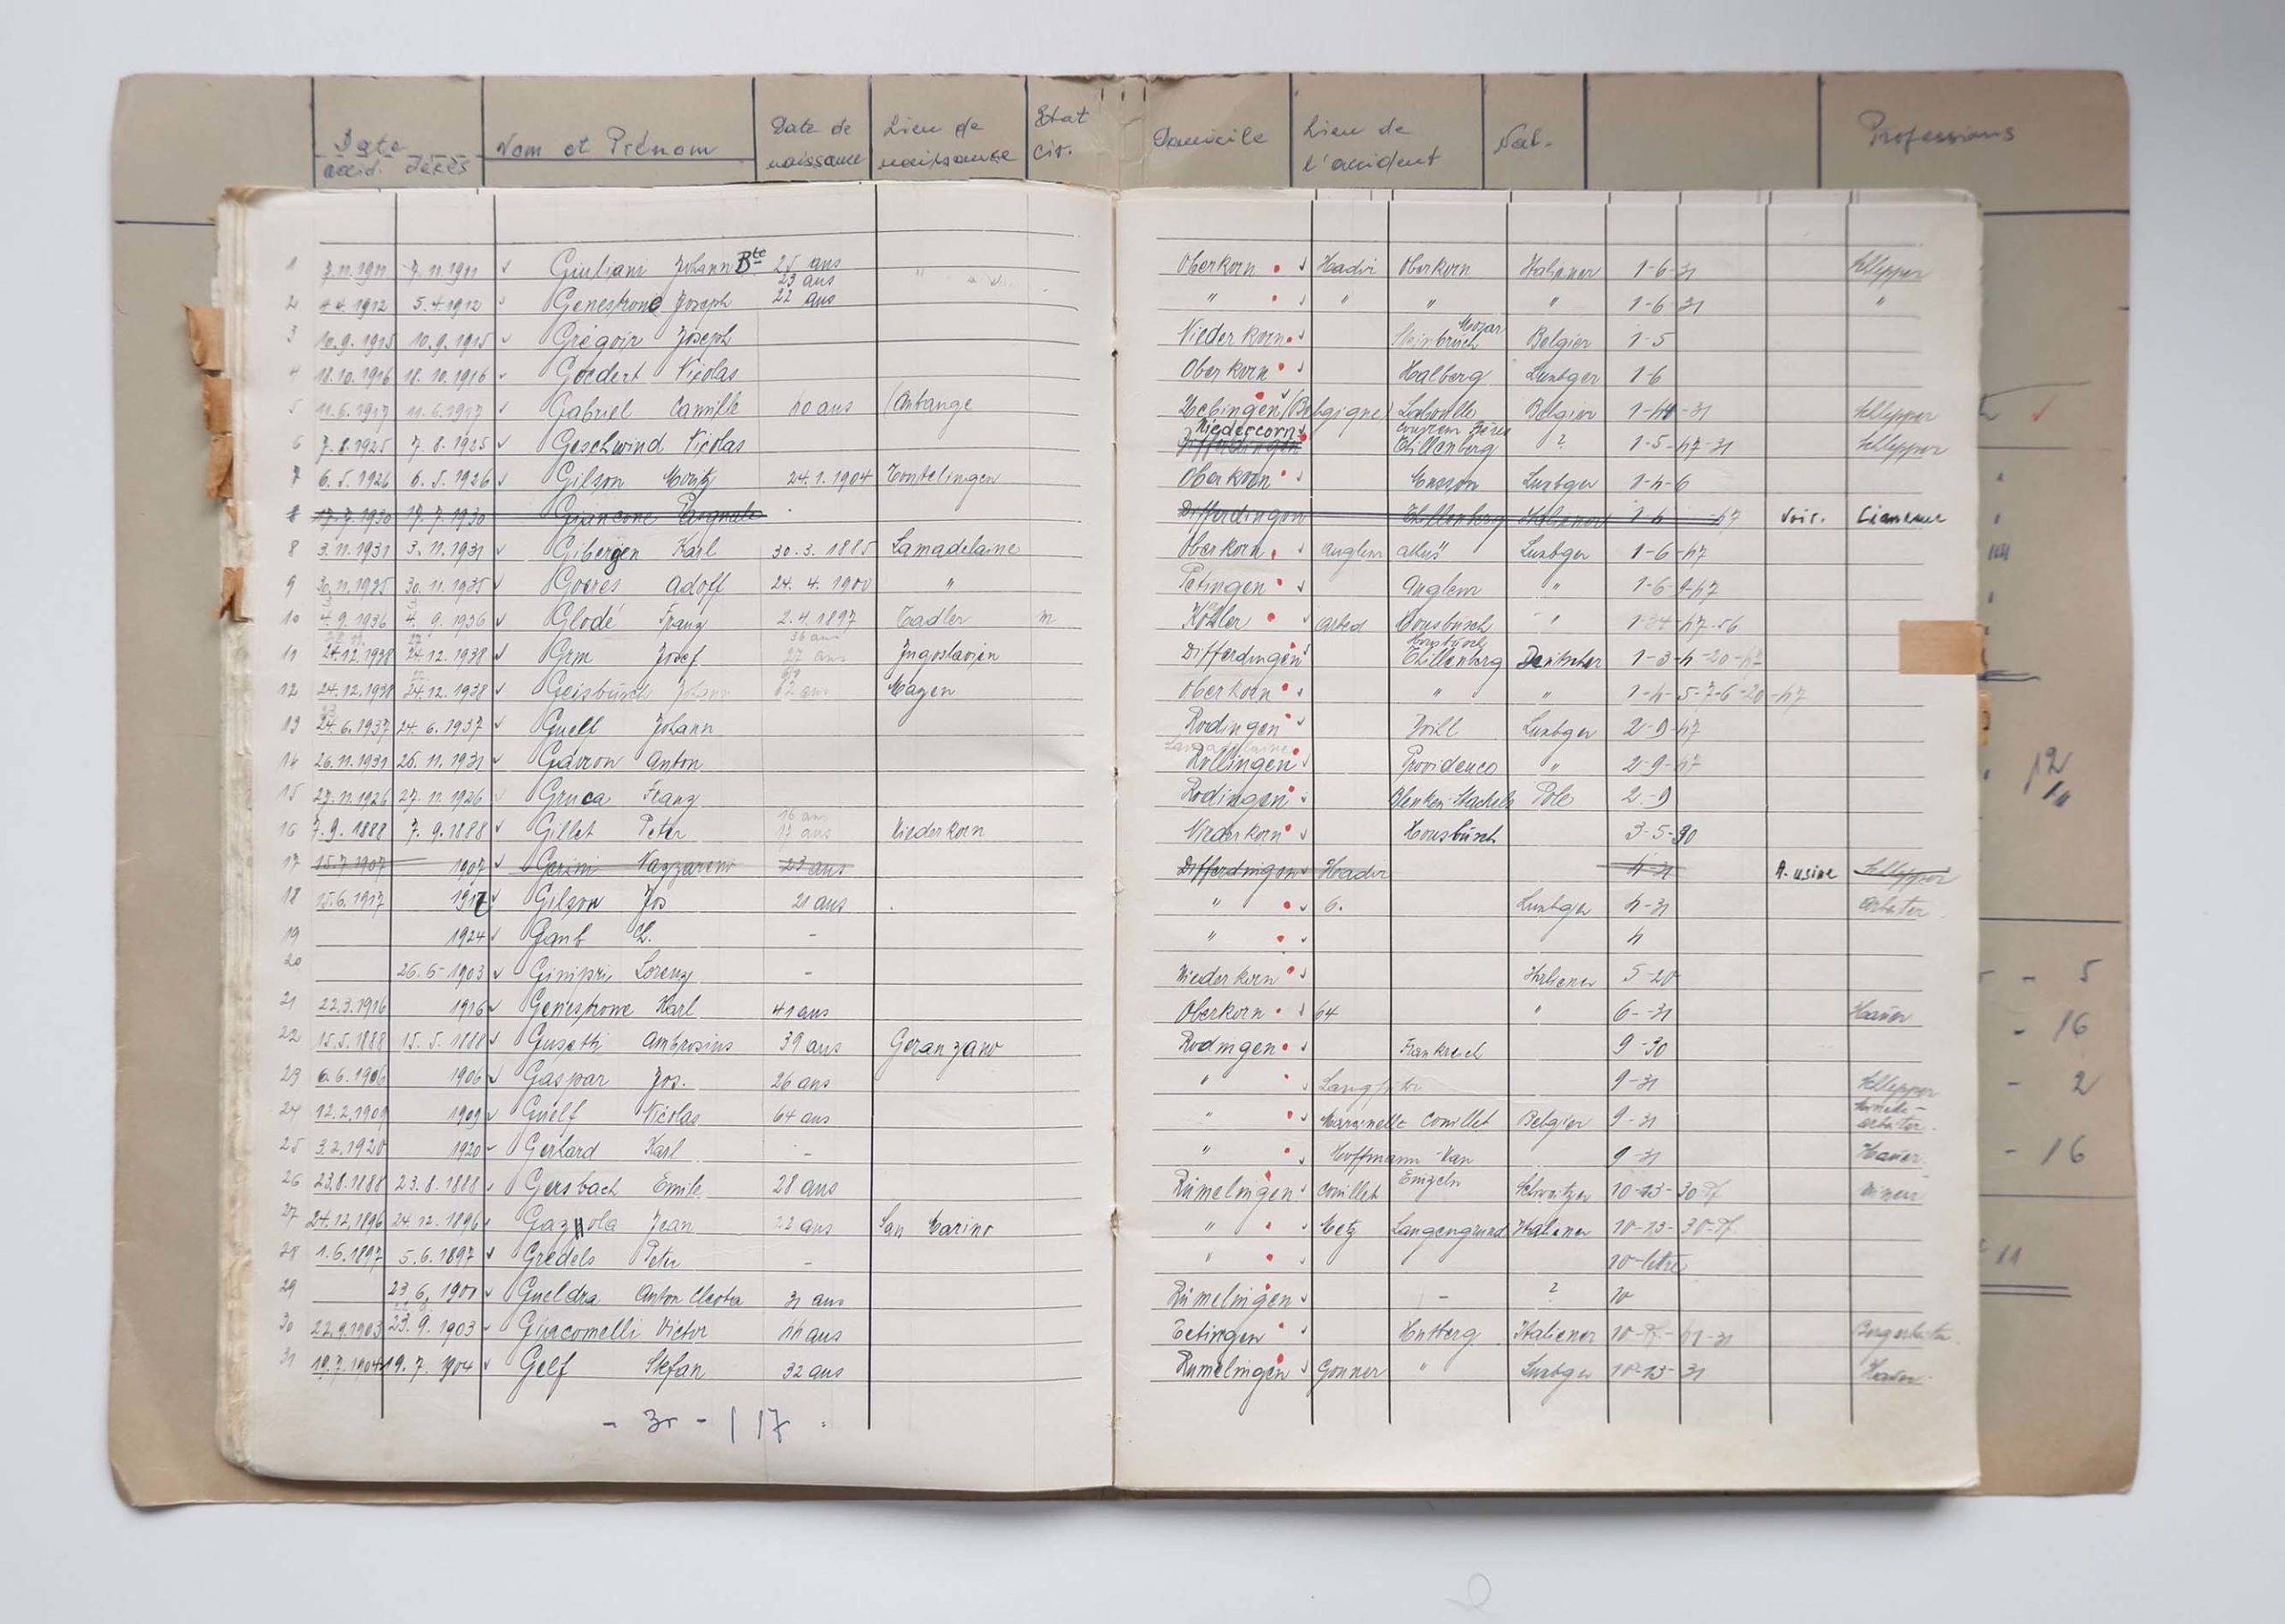 Date
accid. décès
Nom et Prénom
Date de naissance
Lieu de naissance
Etat cic.
Domicile
Lieu de l'accident
Nat.
Professions
1 7.11.1911 7.11.1911 Giuliani Johann Bte 25 ans Oberkorn Hadir Oberkorn Italiener 1-6-31 Schlepper
23 ans
2 4.4.1912 5.4.1912 Genestrone Joseph 22 ans " " " " 1-6 31 "
3 10.9.1915 10.9.1915 Grégoir Joseph Niederkorn Steinbruch Mozar Belgier 1-5
4 18.10.1916 18.10.1916 Goedert Nicolas Oberkorn Halberg Luxbger 1-6
5 11.6.1917 11.6.1917 Gabriel Camille 40 ans (Aubange (Belgique) Belgier Schlepper
6 7.8.1925 7.8.1925 Geschwind Nicolas Niedercorn Differdingen Thillenberg ? 1-5-47-31 Schlepper
7 6.5.1926 6.5.1926 Gilson Moritz 24.1.1904 Tontelingen Oberkorn Musson Luxbger 1-4-6
8 17.7.1930 17.7.1930 Giancone Differdingen Thillenberg Italiener 1-6 47 Voir.
8 3.11.1931 3.11.1931 Gibergen Karl 30.3.1885 Lamadelaine Oberkorn Luxbger 1-6-47
9 30.11.1935 30.11.1935 Goerės Adolf 24.4.1900 " Petingen " 1-6-9-47
10 4.9.1936 4.9.1936 Glodé Franz 2.4.1897 Tadler m. Arbed Housbüsch " 1-34-47-56
36 ans
11 24.12.1938 24.12.1938 Grm Josef 27 ans Jugoslavien Differdingen Thillenberg Deutscher 1-3-4-20-47
12 24.12.1938 24.12.1938 Geisbüsch Johann Mayen Oberkorn " " 1-4-5-7-6-20-47
13 24.6.1937 24.6.1937 Guell Johann Rodingen Luxbger 2-9-47
Lamadelaine
14 26.11.1931 26.11.1931 Gavron Anton Rollingen Providence " 2-9-47
15 27.11.1926 27.11.1926 Gruca Franz Rodingen Pole 2-9
16 ans
16 7.9.1888 7.9.1888 Gillet Peter 17 ans Niederkorn Niederkorn Housbüsch 3-5-30
17 15.7.1907 1907 Gerini Nazzareno 23 ans Differdingen Hadir 4-31 A. usine Schlepper
18 15.6.1917 1917 Gilson Jos 21 ans " 6. Luxbger 4-31 Arbeiter
19 1924 - " 4
20 26.6-1903 Ginipri Lorenz - Niederkorn Italiener 5-20
21 22.3.1916 1916 Genestrone Karl 41 ans Oberkorn 64 " 6--31 Hauer
22 15.5.1888 15.5.1888 Gusetti Ambrosius 39 ans Geranzano Rodingen Frankreich 9-30
23 6.6.1906 1906 Gaspar Jos. 26 ans " 9-31 Schlepper
24 12.2.1909 1909 Guelf Nicolas 64 ans " Marcinelle Couillet Belgier 9-31 arbeiter
25 3.2.1920 1920 Gerhard Karl - " Hoffmann 9-31 Hauer
26 23.8.1888 23.8.1888 Gersbach Emile 28 ans Rümelingen Couillet Schweitzer 10-13-30
27 24.12.1896 24.12.1896 Gaznola Jean 22 ans San Marino " Metz Langengrund Italiener 10-13-30
28 1.6.1897 5.6.1897 Gredels Peter - "
29 23 6. 1900 Gueldra Anton 31 ans Rümelingen - ? 10
30 22.9.1903 23.9.1903 Giacomelli Victor 44 ans Tetingen Hutberg Italiener Bergarbeiter
31 19.7.1904 19.7.1904 Gelf Stefan 32 ans Rümelingen Gonner " Luxbger 10-13-31 Hauer
12
- 5
- 16
- 2
- 16
11